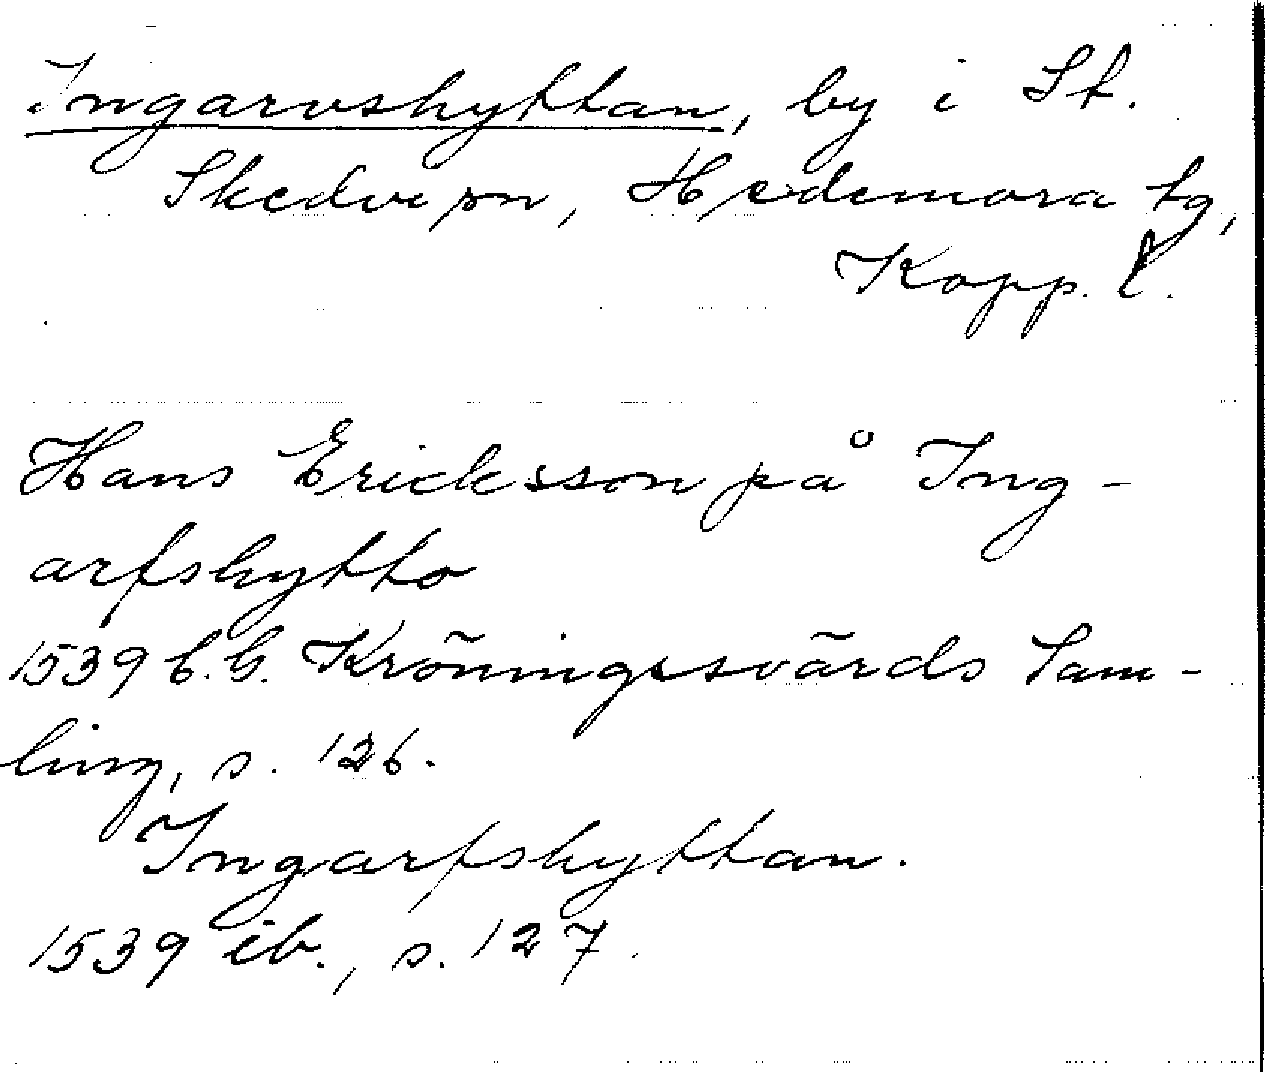 Ingarvshyttan, by i St.
Skedvi sn, Hedemora tg,
Kopp. l.
Hans Ericksson på Ing-
arfshytto
1539 C.G. Kröningssvärds Sam-
ling, s. 126.
Ingarfshyttan.
1539 ib., s. 127.